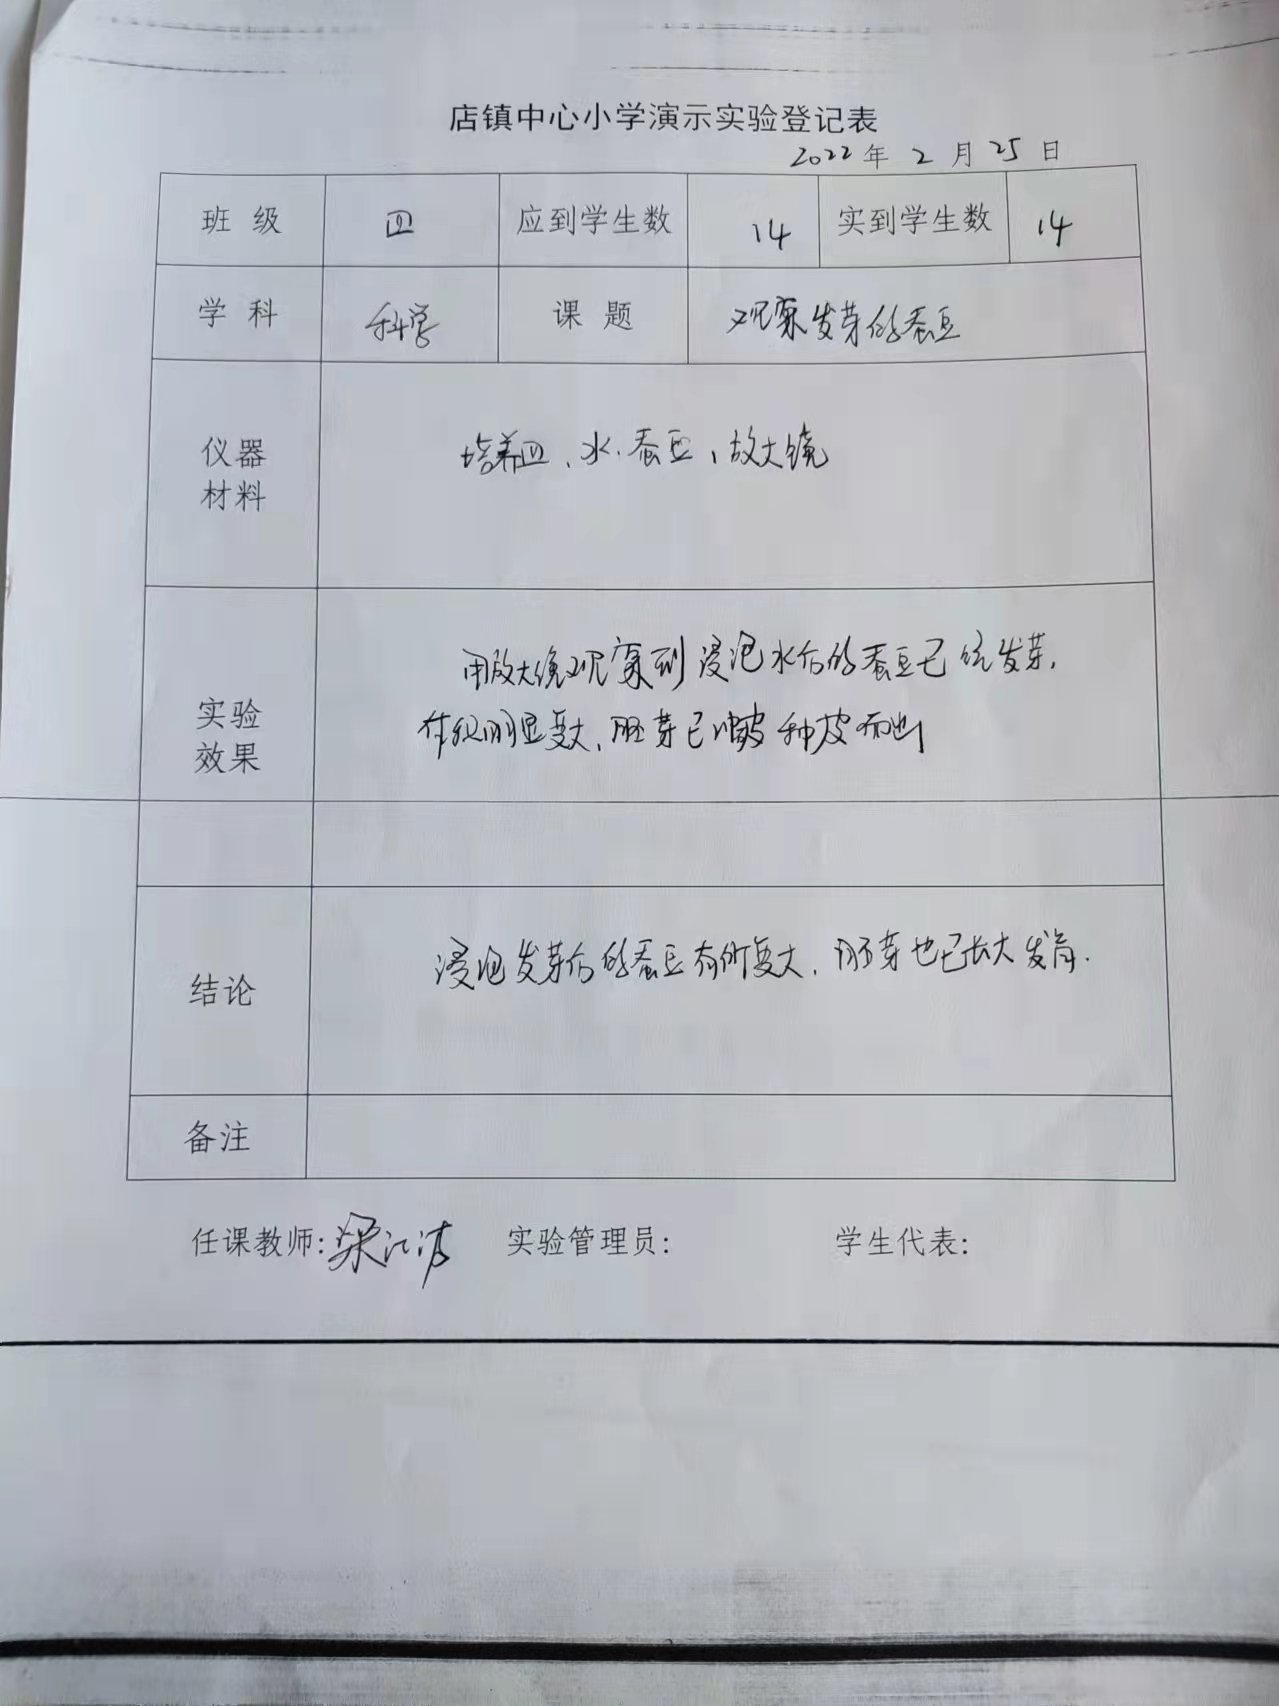 店镇中心小学演示实验登记表
2022年 2月 25日
班级 四 应到学生数 14 实到学生数 14
学科 科学 课题 观察发芽的蚕豆
仪器
材料
培养皿、水、蚕豆、放大镜
实验
效果
用放大镜观察到浸泡水后的蚕豆已经发芽,
体积明显变大、胚芽已冲破种皮而出
结论
浸泡发芽后的蚕豆有所变大、胚芽也已长大发育.
备注
任课教师: 梁江涛 实验管理员: 学生代表: